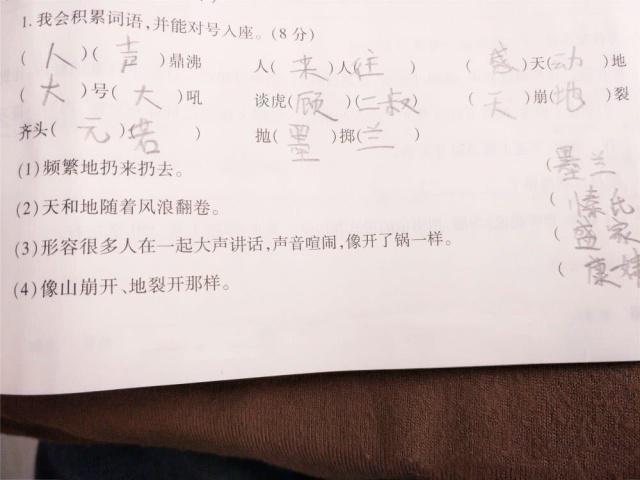 1.我会积累词语,并能对号入座。(8分)
(人)(声)鼎沸 人(来)人(往) (感)天(动)地
(大)号(大)吼 谈虎(顾)(二叔) (天)崩(地)裂
齐头(元)(若) 抛(墨)掷(兰)
(1)频繁地扔来扔去。 (墨兰
(2)天和地随着风浪翻卷。 (愫氏
(3)形容很多人在一起大声讲话,声音喧闹,像开了锅一样。 (盛家
(4)像山崩开、地裂开那样。 (康姨